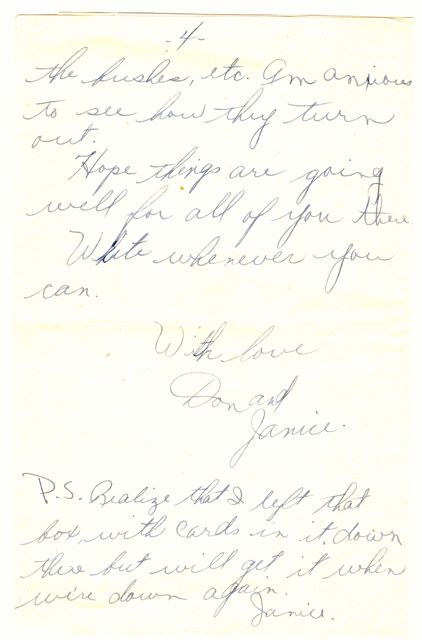 -4-
the bushes, etc. Am anxious
to see how they turn
out.
Hope things are going
well for all of you there
Write whenever you
can.
With love
Don and
Janice.
P.S. Realize that I left that
box, with cards in it, down
there but will get it when
we're down again.
Janice.